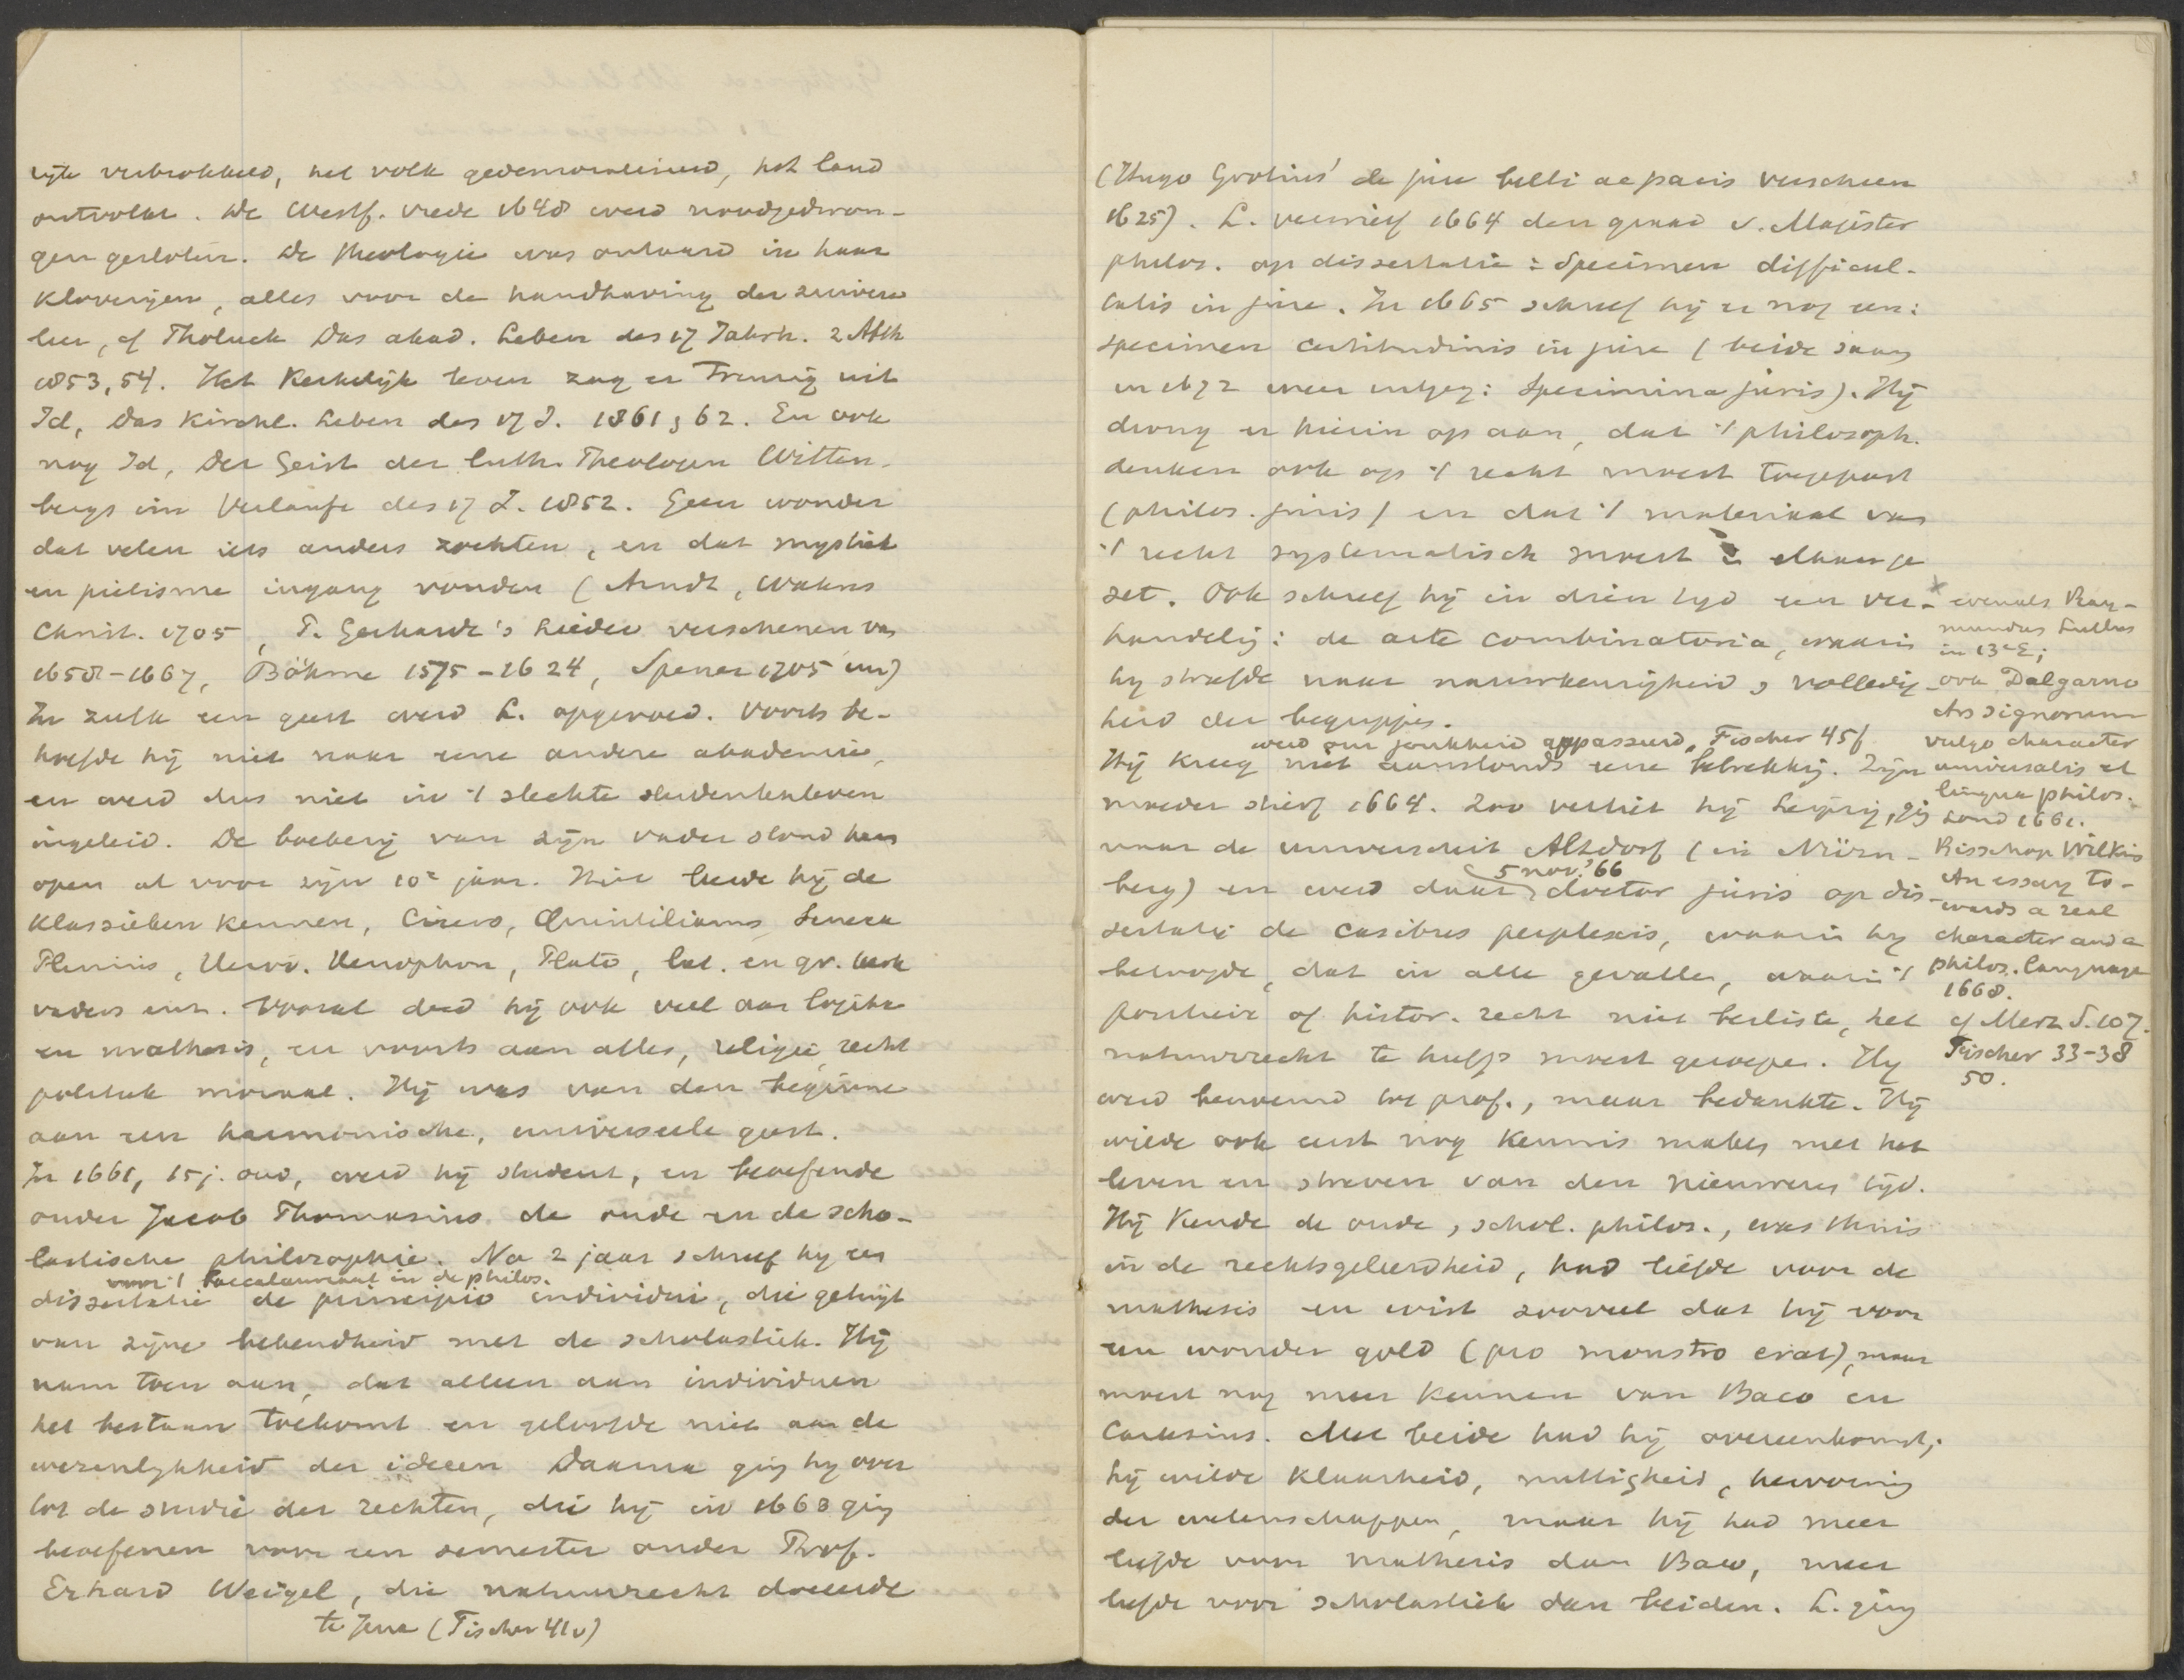 rijk verbrokkeld, het volk gedemoraliseerd, het land
ontvolkt. De Westf. vrede 1648 werd noodgedwon-
gen gesloten. De theologie was ontaard in haar
kloverijen, alles voor de handhaving der zuivere
leer, cf Tholuck Das akad. Leben des 17 Jahrh. 2 Abth
1853, 54. Het kerkelijk leven zag er treurig uit
Id, Das kirchl. Leben des 17 J. 1861, 62. En ook
nog Id, Der Geist der luth. Theologen Witten-
bergs im Verlaufe des 17 J. 1852. Geen wonder
dat velen iets anders zochten, en dat mystiek
en pietisme ingang vonden (Arndt, Wahres
Christ. 1705, P. Gerhardt's Lieder verschenen van
1658-1667, Böhme 1575-1624, Spener 1705 enz)
In zulk een geest werd L. opgevoed. Voorts be-
hoefde hij niet naar eene andere akademie,
en werd dus niet in 't slechte studentenleven
ingeleid. De boekerij van zijn vader stond hem
open al voor zijn 10e jaar. Hier leerde hij de
klassieken kennen, Cicero, Quintilianus, Seneca
Plinius, Herod. Xenophon, Plato, lat. en gr. kerk
vaders enz. Vooral deed hij ook veel aan logika
en mathesis, en voorts aan alles, religie, recht
politiek moraal. Hij was van den beginne
aan een harmonische, universeele geest.
In 1661, 15 j. oud, werd hij student, en beoefende
onder Jacob Thomasius de oude en de scho-
lastische philosophie. Na 2 jaar schreef hij een
voor 't baccalaureaat in de philos.
dissertatie de principio individui, die getuigt
van zijne bekendheid met de scholastiek. Hij
nam toen aan, dat alleen aan individuen
het bestaan toekomt en geloofde niet aan de
wezenlijkheid der ideeen. Daarna ging hij over
tot de studie der rechten, die hij in 1663 ging
beoefenen voor een semester onder Prof.
Erhard Weigel, die natuurrecht doceerde
te Jena (Fischer 41v)
(Hugo Grotius' de jure belli ac pacis verscheen
1625). L. verwierf 1664 den graad v. Magister
philos. op dissertatie: Specimen difficul-
tatis in jure. In 1665 schreef hij er nog een:
specimen certitudinis in jure (beide saam
in 1672 weer uitgeg: Specimina juris). Hij
drong er hierin op aan, dat 't philosoph.
denken ook op 't recht moest toegepast
(philos. juris) en dat 't materiaal van
't recht systematisch moest elkaar ge
zet. Ook schreef hij in dien tijd een ver-
handelig: de arte combinatoria, waarin
hij streefde naar nauwkeurigheid, volledig
heid der begrippen.
werd om jonkheid gepasseerd, Fischer 45f
Hij kreeg niet aanstonds eene betrekkig. Zijn
moeder stierf 1664. Zoo verliet hij Leipzig, gig
naar de universiteit Altdorf (in Nürn-
5 nov. '66
berg) en werd daar doctor juris op dis
sertatie de casibus perplexis, waarin hij
betoogde, dat in alle gevallen, waarin 't
positieve of histor. recht niet besliste, het
natuurrecht te hulp moest geroepen. Hij
werd benoemd tot prof., maar bedankte. Hij
wilde ook eerst nog kennis maken met het
leven en streven van den nieuweren tijd.
Hij kende de oude, schol. philos., was thuis
in de rechtsgeleerdheid, had liefde voor de
mathesis en wist zooveel dat hij voor
een wonder gold (pro monstro erat), maar
moest nog meer kennen van Baco en
Cartesius. Met beide had hij overeenkomst;
hij wilde klaarheid, nuttigheid, hervorming
der wetenschappen, maar hij had meer
liefde voor mathesis dan Baco, meer
liefde voor scholastiek dan beiden. L. ging
x evenals Ray-
mundus Lullus
in 13e E;
ook Dalgarno
Ars signorum
vulgo character
universalis et
lingua philos.
Lond 1661.
Bisschop Wilkins
An essay to-
wards a real
character and a
philos. language
1668.
cf Merz S. 107.
Fischer 33-38
50.